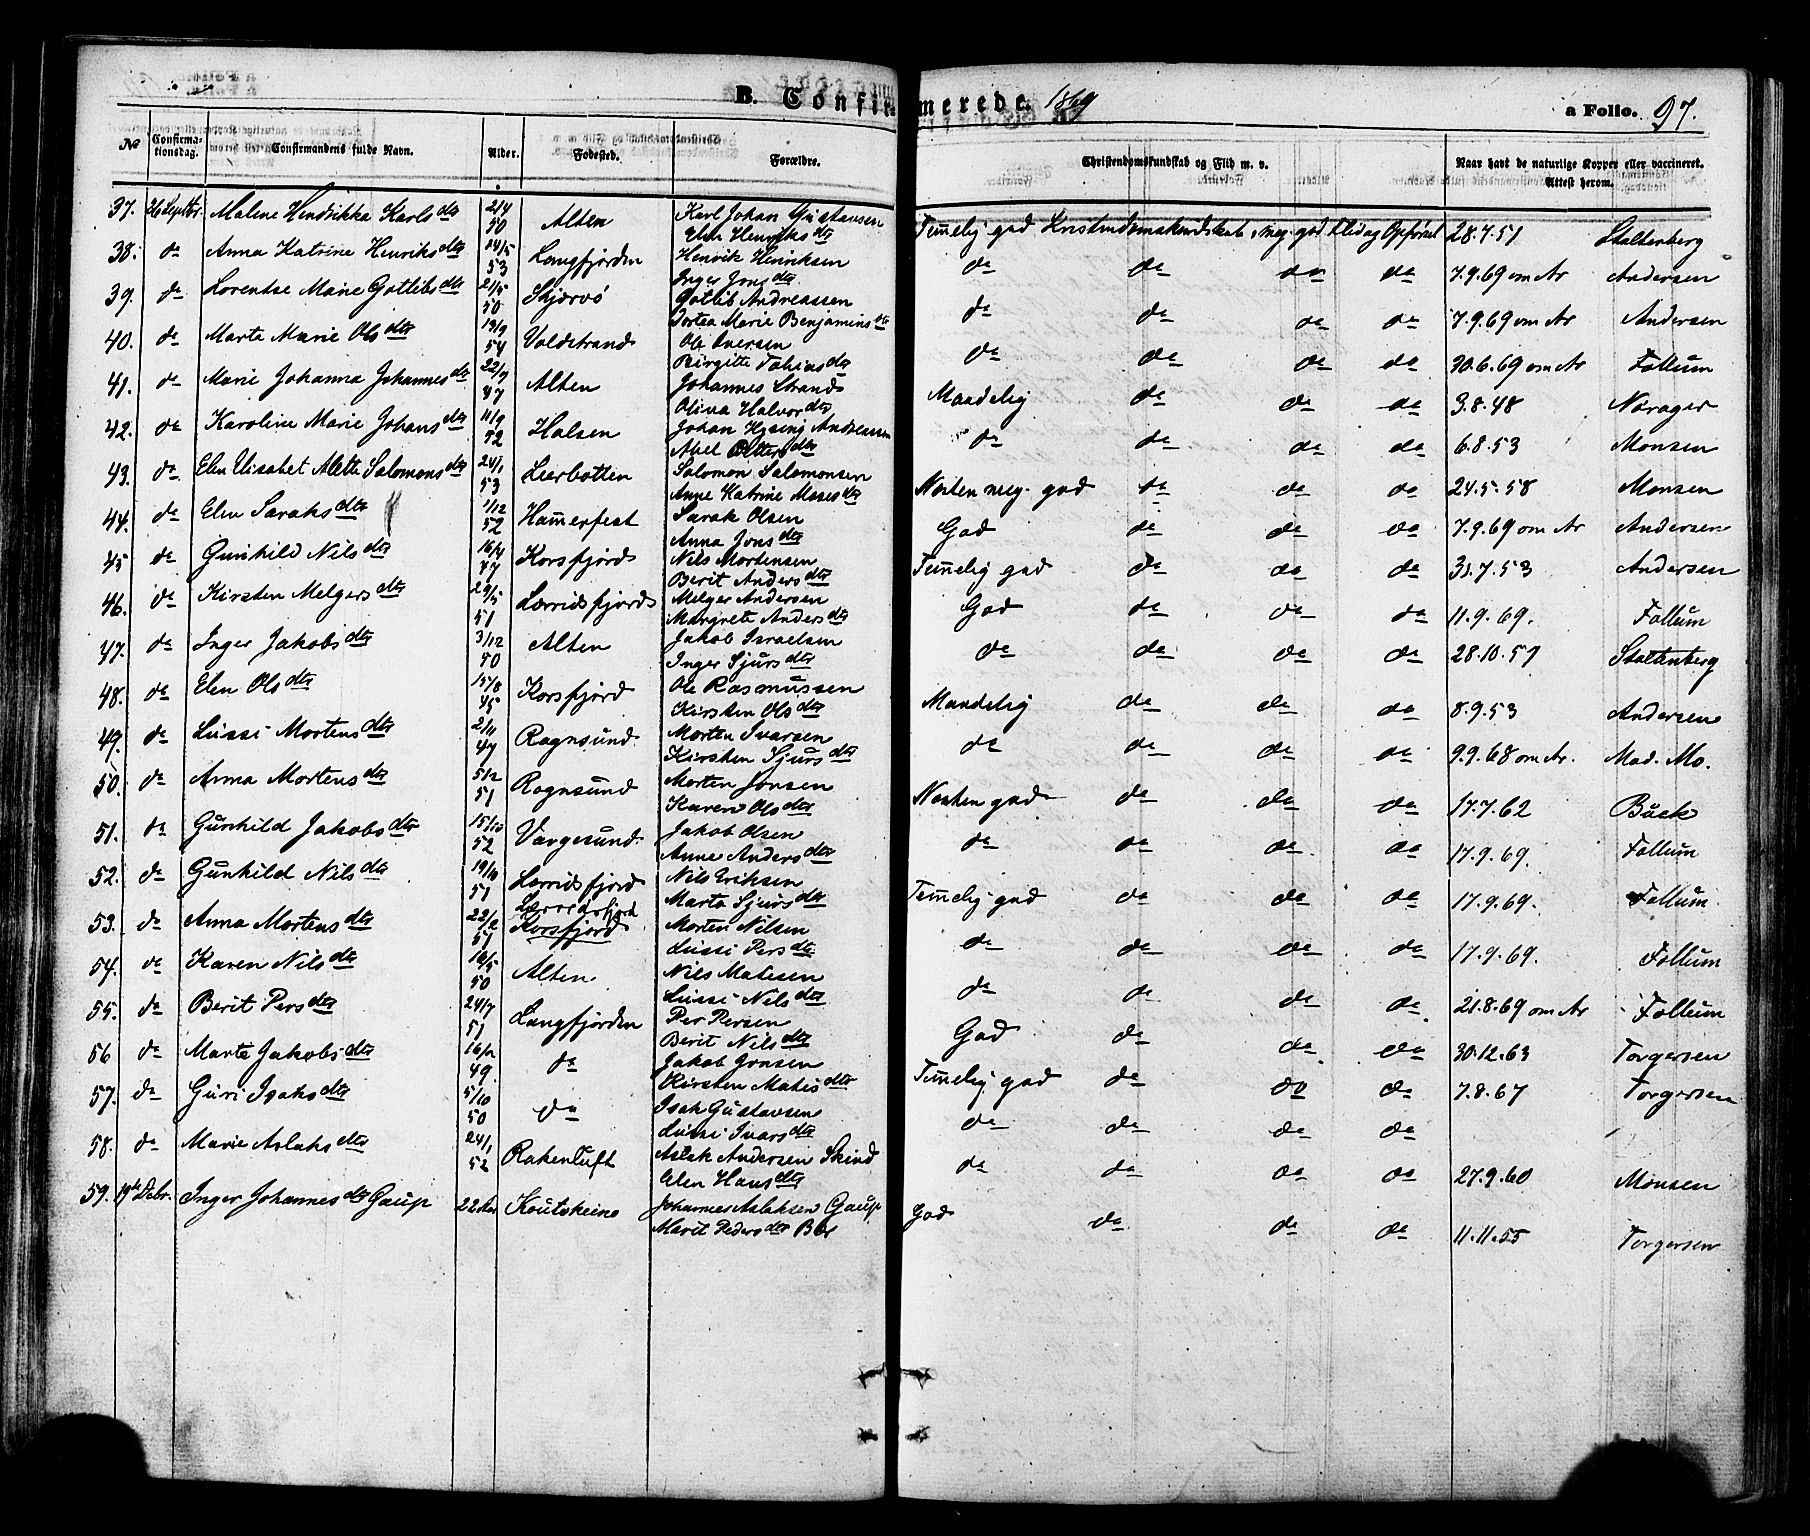 B. Confirmerede. 1869
a Folio. 97.
No Confirmationsdag. Confirmandens fulde Navn. Alder. Fødested. Forældre. Christendomskundskab og Flid m. v. Naar havt de naturlige Kopper eller vaccineret. Attest herom.
37. 26 Septbr. Malene Hendrikka Karlsdtr 2/4 50 Alten Karl Johan Gustavsen Elen Henriksdtr Temmelig god Kristendomskundskab, meg. god Flid og Opførsel 28.7.51 Stoltenberg
38. do Anna Katrine Henriksdtr 14/5 53 Langfjorden Henrik Henriksen Inger Jonsdtr do do do do 7.9.69 om Ar Andersen
39. do Lorentse Marie Gotlibsdtr 21/5 50 Skjærvø Gotlib Andreassen Dortea Marie Benjaminsdtr do do do do 7.9.69 om Ar Andersen
40. do Marta Marie Olsdtr 19/9 54 Voldstrand Ole Iversen Birgitte Tobiasdtr do do do do 30.6.69 om Ar Follum
41. do Marie Johanna Johannesdtr 22/7 47 Alten Johannes Strand Oliva Halvordtr Maadelig do do do 3.8.48 Nørager
42. do Karoline Marie Johansdtr 11/9 52 Halsen Johan Hysing Andreassen Abel Pettersdtr do do do do 6.8.53 Monsen
43. do Elen Elisabet Alette Salomonsdtr 24/1 53 Leerbotten Salomon Salomonsen Anne Katrine Mosesdtr Næsten meg. god do do do 24.5.58 Monsen
44. do Elen Saraksdtr 1/12 52 Hammerfest Sarak Olsen Anna Jonsdtr God do do do 7.9.69 om Ar Andersen
45 do Gunhild Nilsdtr 16/4 47 Korsfjord Nils Mortensen Berit Andersdtr Temmelig god do do do 31.7.53 Andersen
46. do Kirsten Melgersdtr 29/5 51 Lærridsfjord Melger Andersen Margrete Andersdtr God do do do 11.9.69. Follum
47. do Inger Jakobsdtr 3/12 50 Alten Jakob Israelsen Inger Sjursdtr do do do do 28.10.57 Stoltenberg
48. do Elen Olsdtr 15/8 45 Korsfjord Ole Rasmussen Kirsten Olsdtr Maadelig do do do 8.9.53 Andersen
49. do Lussi Mortensdtr 2/11 47 Rognsund Morten Ivarsen Kirsten Sjursdtr do do do do 9.9.68 om Ar. Mad. Mo.
50. do Anna Mortensdtr 5/12 51 Rognsund Morten Jonsen Karen Olsdtr Næsten god do do do 17.7.62 Back
51. do Gunhild Jakobsdtr 15/10 52 Vargesund Jakob Olsen Anne Andersdtr do do do do 17.9.69. Follum
52. do Gunhild Nilsdtr 19/11 51 Lærridsfjord Nils Eriksen Marta Sjursdtr Temmelig god do do do 17.9.69. Follum
53. do Anna Mortensdtr 22/2 51 Lærredsfjord Korsfjord Morten Nilsen Lussi Persdtr do do do do 17.9.69. Follum
54. do Karen Nilsdtr 16/5 50 Alten Nils Matesen Lussi Nilsdtr do do do do 21.8.69 om Ar Follum
55. do Berit Persdtr 24/7 51 Langfjorden Per Persen Berit Nilsdtr God do do do 30.12.63 Torgersen
56 do Marta Jakobsdtr 16/2 49. do Jakob Jonsen Kirsten Matisdtr Temmelig god do do do 7.8.67 Torgersen
57. do Guri Isaksdtr 5/10 50 do Isak Gustavsen Lussi Ivarsdtr do do do do
58. do Marie Aslaksdtr 24/1 52 Rakentuft Aslak Andersen Skind Elen Hansdtr do do do do 27.9.60 Monsen
59. 19de Debr. Inger Johannesdtr Gaup 22 Aar Koutokeino Johannes Aslaksen Gaup Marit Pedersdtr Bær God do do do 11.11.55 Torgersen